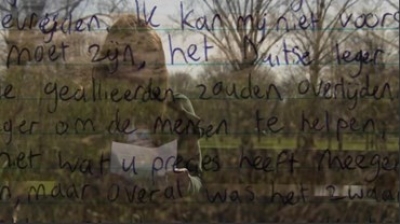 evrijden. Ik kan mij niet voors
moet zijn, het Duitse leger
ie geallieerden zouden overlijden
ger om de mensen te helpen,
niet wat u precies heeft meege
n, maar overal was het zwaa